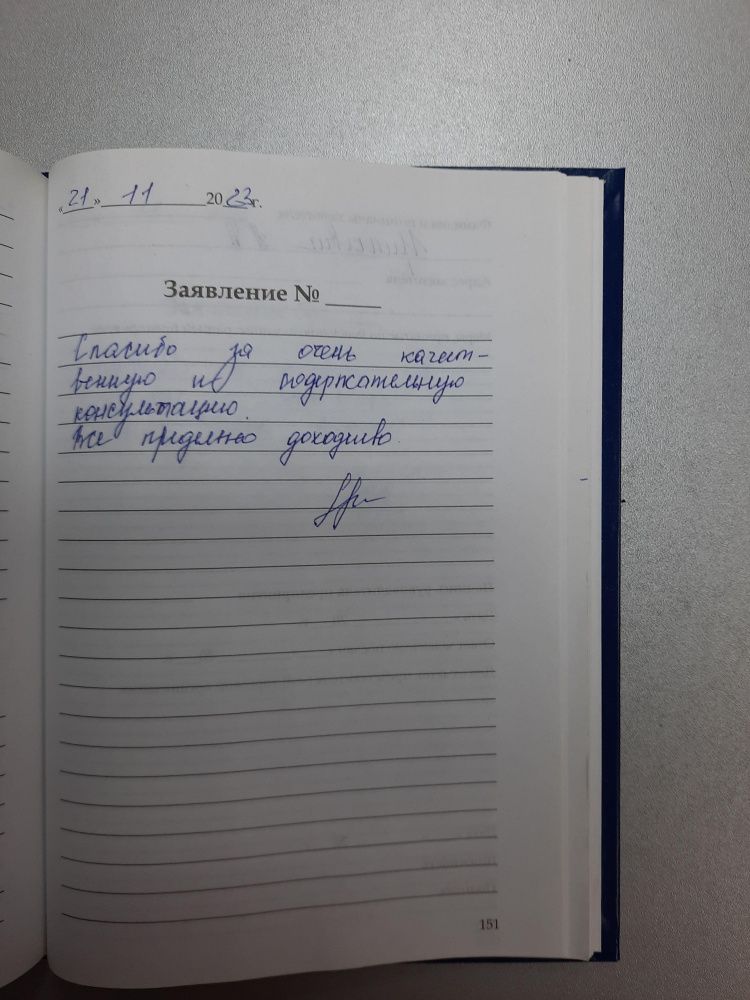 «21» 11 2023г.
Заявление № ____
Спасибо за очень качест-
венную и содержательную
консультацию.
Все предельно доходчиво.
151